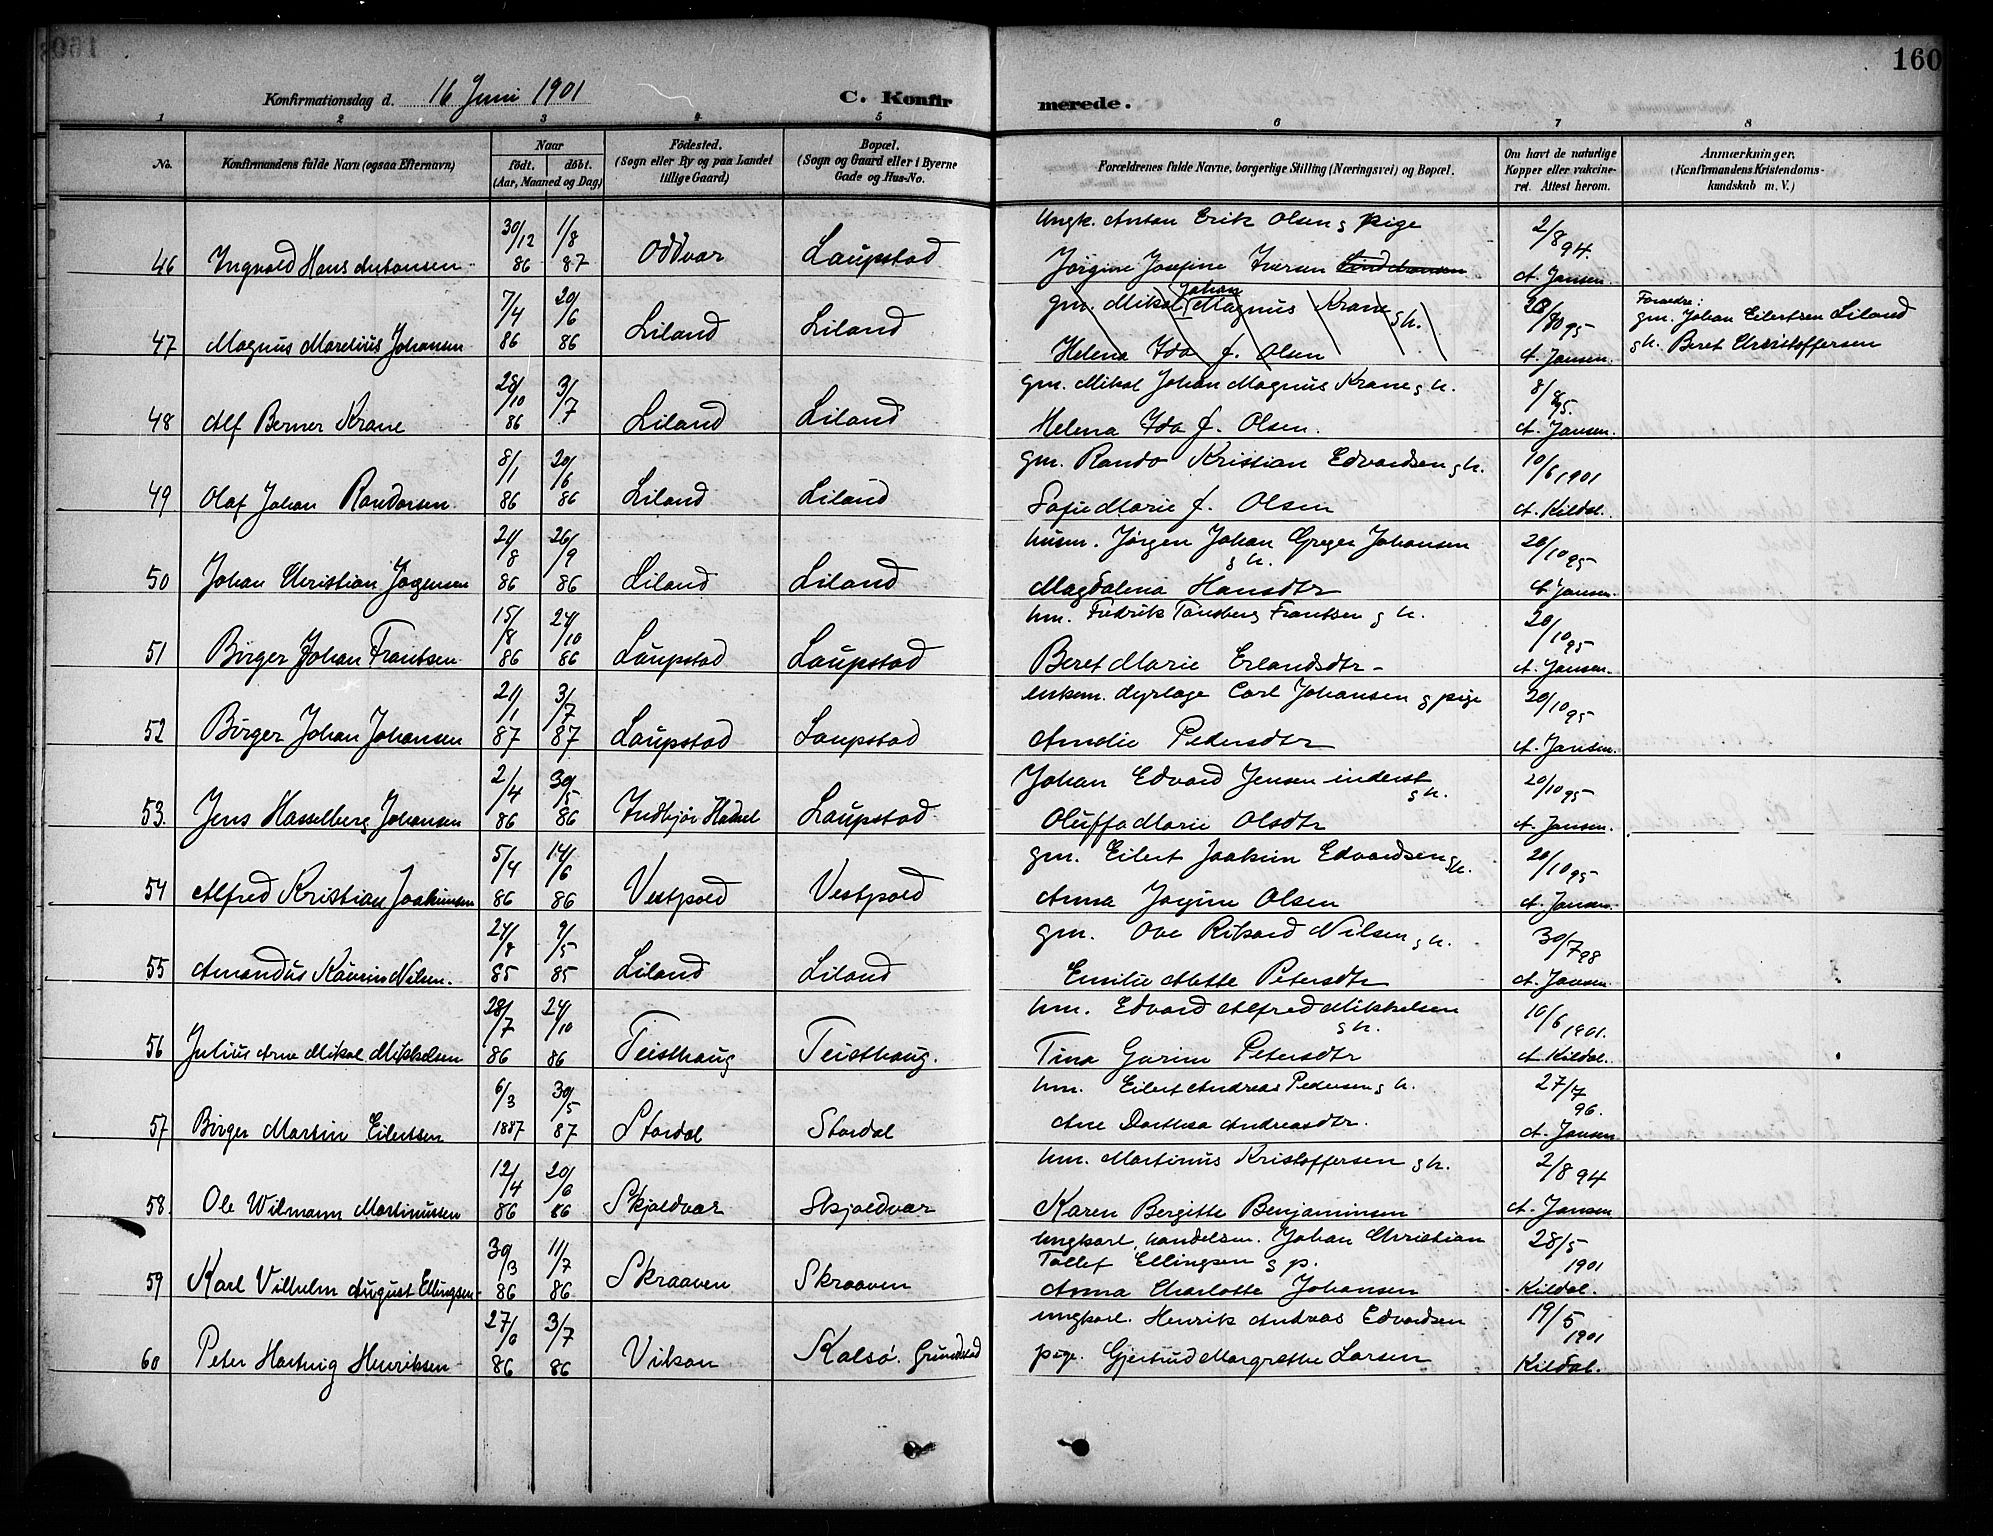 160
Konfirmationsdag d. 16 Juni 1901
C. Konfir
merede.
1 2 3 4 5 6 7 8
No.
Konfirmandens fulde Navn (ogsaa Efternavn)
Naar
födt. döbt.
(Aar, Maaned og Dag)
Födested.
(Sogn eller By og paa Landet
tillige Gaard)
Bopæl.
(Sogn og Gaard eller i Byerne
Gade og Hus-No.
Forældrenes fulde Navne, borgerlige Stilling (Næringsvei) og Bopæl.
Om havt de naturlige
Kopper eller vakcine-
ret. Attest herom.
Anmærkninger.
(Konfirmandens Kristendoms-
kundskab m. V.)
Ungk. Anton Erik Olsen & pige
46 Ingvald Hans Antonsen 30/12 86 1/8 87 Oddvar Laupstad Jörgine Josefine Iversen 2/8 94. A. Jansen.
gm. Mikal Johan Magnus Krane & h.
47 Magnus Marelius Johansen 7/4 86 20/6 86 Liland Liland Helena Ida f. Olsen 95 A. Jansen.
Forældre:
gm. Johan Eilertsen Liland
& h. Beret Christoffersen
gm. Mikal Johan Magnus Krane & h.
48 Alf Berner Krane 28/10 86 3/7 Liland Liland Helena Ida f. Olsen. 8/8 95. A. Jansen.
gm. Rando Kristian Edvardsen & h.
49 Olaf Johan Randorsen 8/1 86 20/6 86 Liland Liland Sofie Marie f. Olsen 10/6 1901 A. Kildal.
husm. Jörgen Johan Greger Johansen & h.
50 Johan Christian Jörgensen 21/8 86 26/9 86 Liland Liland Magdalena Hansdtr 20/10 95 A. Jansen.
hm. Fredrik Tönsberg Frantsen & h.
51 Birger Johan Frantsen 15/8 86 24/10 86 Laupstad Laupstad Beret Marie Erlandsdtr 20/10 95 A. Jansen.
enkem. dyrlæge Carl Johansen & pige
52 Birger Johan Johansen 21/1 87 3/7 87 Laupstad Laupstad Amalie Pedersdtr 20/10 95 A. Jansen.
Johan Edvard Jensen inderst & h.
53. Jens Hasselberg Johansen 2/4 86 30/5 86 Indbjör Hadsel Laupstad Oluffa Marie Olsdtr 20/10 95 A. Jansen.
gm. Eilert Joakim Edvardsen & h.
54 Alfred Kristian Joakimsen 5/4 86 14/6 86 Vestpold Vestpold Anna Jörgine Olsen 20/10 95 A. Jansen.
gm. Ove Rikard Nilsen & h.
55 Amandus Kaurin Nilsen. 85 9/5 85 Liland Liland Emilie Mette Petersdtr 30/7 98 A. Jansen.
hm. Edvard Alfred Mikkelsen & h.
56 Julius Arne Mikal Mikkelsen 28/7 86 24/10 86 Teisthaug Teisthaug. Tina Gurine Petersdtr 10/6 1901. A. Kildal.
hm. Eilert Andreas Pedersen & h.
57 Birger Martin Eilertsen 6/3 1887 30/5 87 Stordal Stordal Ane Dorthea Andreasdtr. 27/7 96. A. Jansen
hm. Martinus Kristoffersen & h.
58. Ole Wilmann Martinussen 12/4 86 20/6 86 Skjoldvar Skjoldvar Karen Bergitte Benjaminsen 2/8 94 A. Jansen
ungkarl, handelsm. Johan Christian
Tollef Ellingsen & p.
59 Karl Vilhelm August Ellingsen 30/3 86 11/7 86 Skraaven Skraaven Anna Charlotte Johansen 28/5 1901 Kildal.
ungkarl. Henrik Andreas Edvardsen
60 Peter Hartvig Henriksen 27/6 86 3/7 86 Vikan Kalsö. Grundstad pige. Gjertrud Margrethe Larsen 19/5 1901 Kildal.